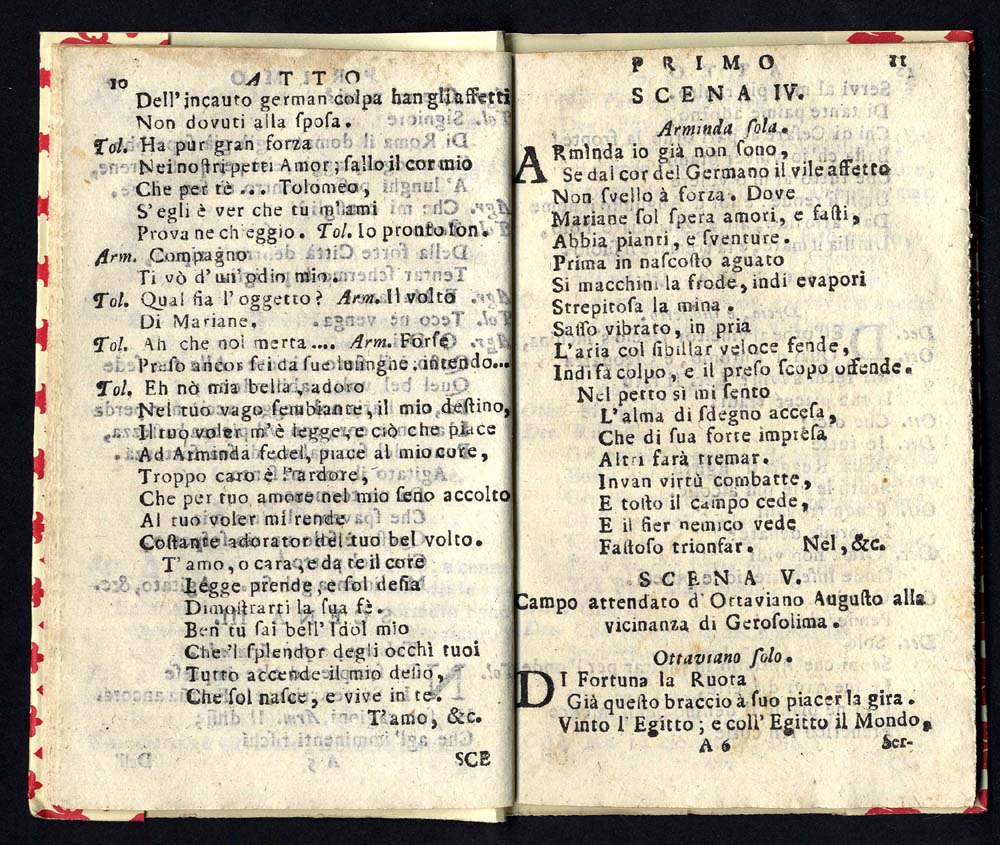 10 ATTO
Dell'incauto german colpa han gli affetti
Non dovuti alla ſpoſa.
Tol. Ha pur gran forza
Nei noſtri petti Amor; ſallo il cor mio
Che per tè ... Tolomeo,
S'egli è ver che tu m'ami
Prova ne ch'eggio. Tol. Io pronto ſon.
Arm. Compagno
Ti vò d'un'odio mio.
Tol. Qual ſia l'oggetto? Arm. Il volto
Di Mariane.
Tol. Ah che nol merta .... Arm. Forſe
Preſo ancor ſei da ſue luſinghe, intendo...
Tol. Eh nò mia bella, adoro
Nel tuo vago ſembiante, il mio deſtino,
Il tuo voler m'è legge, e ciò che piace
Ad Arminda fedel, piace al mio core,
Troppo caro è l'ardore,
Che per tuo amore nel mio ſeno accolto
Al tuo voler mi rende
Coſtante adorator del tuo bel volto.
T'amo, o cara, e da te il core
Legge prende, e ſol deſia
Dimoſtrarti la ſua fè.
Ben tu ſai bell'Idol mio
Che'l ſplendor degli occhi tuoi
Tutto accende il mio deſio,
Che ſol naſce, e vive in te.
T'amo, &c.
SCE
PRIMO 11
SCENA IV.
Arminda ſola.
ARminda io già non ſono,
Se dal cor del Germano il vile affetto
Non ſvello à forza. Dove
Mariane ſol ſpera amori, e faſti,
Abbia pianti, e ſventure.
Prima in naſcoſto aguato
Si macchini la frode, indi evapori
Strepitoſa la mina.
Saſſo vibrato, in pria
L'aria col ſibillar veloce fende,
Indi fa colpo, e il preſo ſcopo offende.
Nel petto sì mi ſento
L'alma di ſdegno acceſa,
Che di ſua forte impreſa
Altri farà tremar.
Invan virtù combatte,
E toſto il campo cede,
E il fier nemico vede
Faſtoſo trionfar. Nel, &c.
SCENA V.
Campo attendato d'Ottaviano Auguſto alla
vicinanza di Geroſolima.
Ottaviano ſolo.
DI Fortuna la Ruota
Già queſto braccio à ſuo piacer la gira.
Vinto l'Egitto; e coll'Egitto il Mondo,
A 6 Ser-